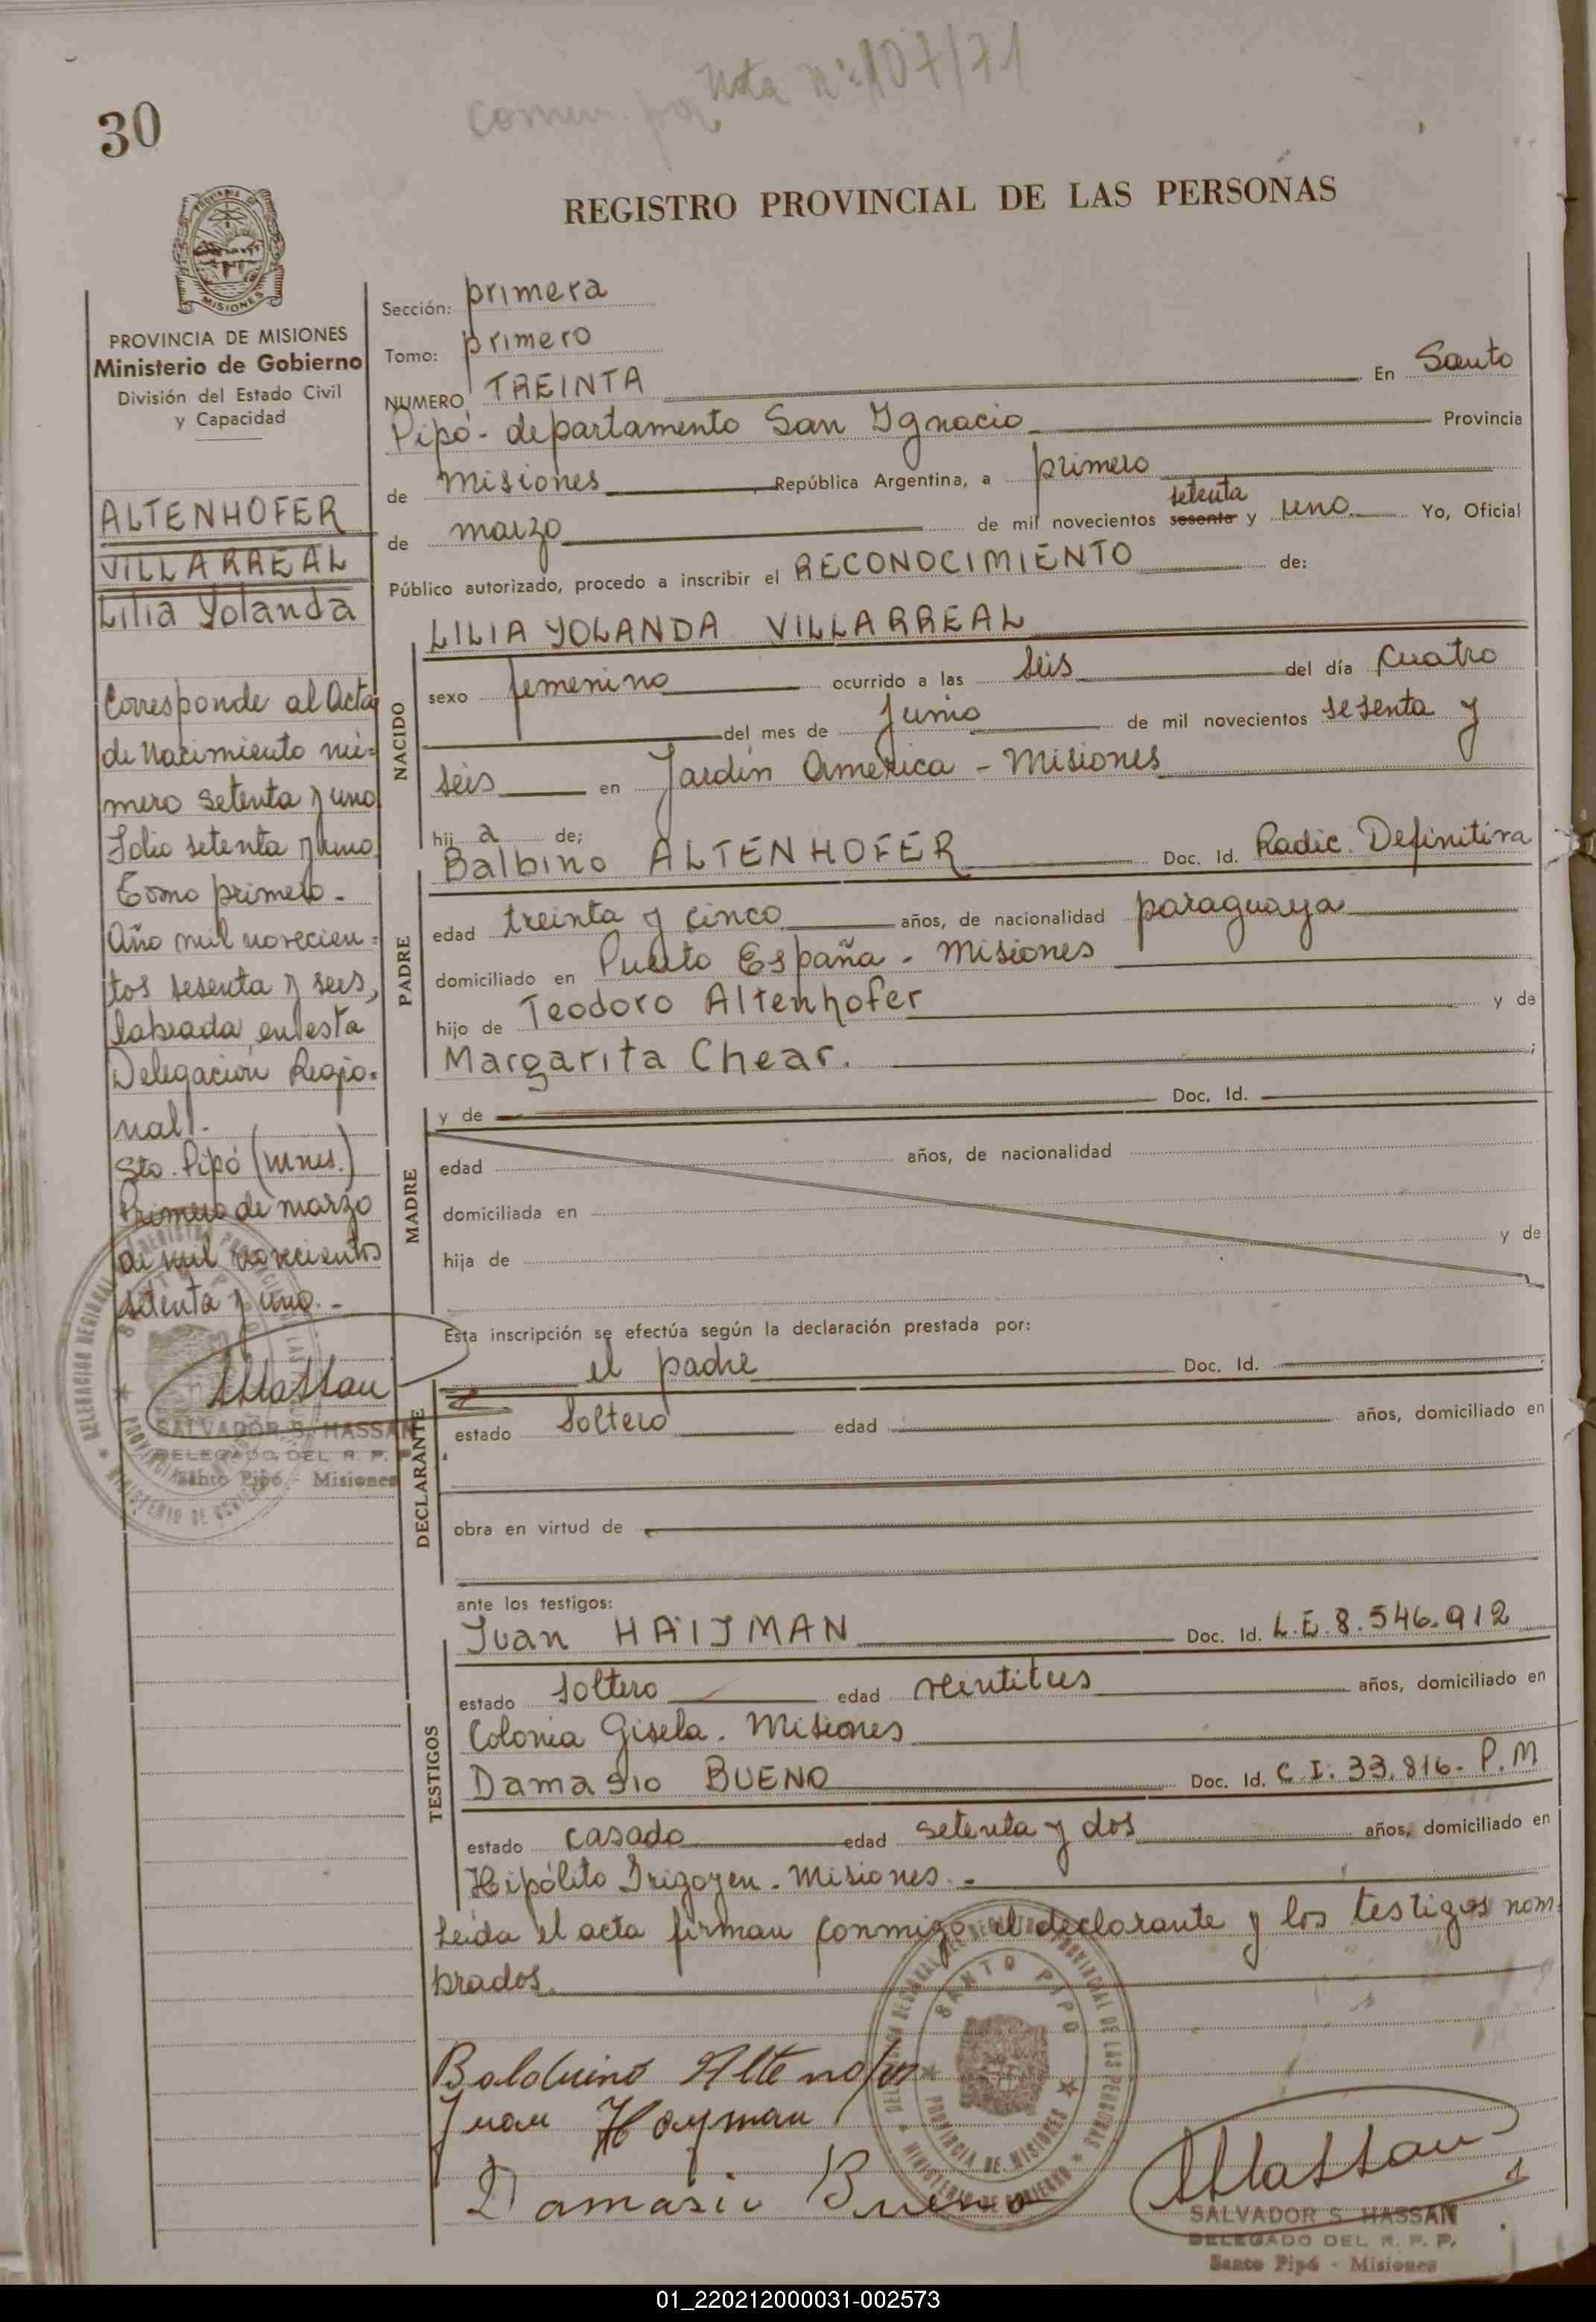 Nota nº 107/71
30
REGISTRO PROVINCIAL DE LAS PERSONAS
PROVINCIA
MISIONES
PROVINCIA DE MISIONES
Ministerio de Gobierno
División del Estado Civil
y Capacidad
ALTENHOFER
VILLARREAL
Lilia Yolanda
Corresponde al Acta
de Nacimiento nú-
mero setenta y uno
Folio setenta y uno
Tomo primero -
Año mil novecien-
tos sesenta y seis,
labrada en esta
Delegación Regio-
nal!-
Sto. Pipó (mnes.)
Primero de marzo
de mil novecientos
setenta y uno. -
SALVADOR S. HASSAN
DELEGADO DEL R. P. P.
Santo Pipó - Misiones
Sección: primera
Tomo: primero
NUMERO TREINTA En Santo
Pipó - departamento San Ignacio Provincia
de misiones República Argentina, a primero
setenta
de marzo de mil novecientos sesenta y uno Yo, Oficial
Público autorizado, procedo a inscribir el RECONOCIMIENTO de:
NACIDO
LILIA YOLANDA VILLARREAL
sexo femenino ocurrido a las seis del día cuatro
del mes de junio de mil novecientos sesenta y
seis en Jardín América - Misiones
hij a de;
PADRE
Balbino ALTENHOFER Doc. Id. Radic. Definitiva
edad treinta y cinco años, de nacionalidad paraguaya
domiciliado en Puerto España - Misiones
hijo de Teodoro Altenhofer y de
Margarita Chear. ;
MADRE
y de Doc. Id.
edad años, de nacionalidad
domiciliada en
hija de y de
Esta inscripción se efectúa según la declaración prestada por:
DECLARANTE
el padre Doc. Id.
estado soltero edad años, domiciliado en
obra en virtud de
ante los testigos:
TESTIGOS
Juan HAIJMAN Doc. Id. L.E. 8.546.912
estado soltero edad veintitres años, domiciliado en
Colonia Gisela. Misiones
Damasio BUENO Doc. Id. C.I: 33.816- P.M
estado casado edad setenta y dos años, domiciliado en
Hipólito Irigoyen - Misiones. -
Leída el acta firman conmigo el declarante y los testigos nom-
brados.
DELEGACION REGIONAL DEL REGISTRO PROVINCIAL DE LAS PERSONAS
SANTO PIPO
PROVINCIA DE MISIONES
MINISTERIO DE GOBIERNO
Juan Hayman
Damasio Bueno
SALVADOR S. HASSAN
DELEGADO DEL R. P. P.
Santo Pipó - Misiones
01_220212000031-002573